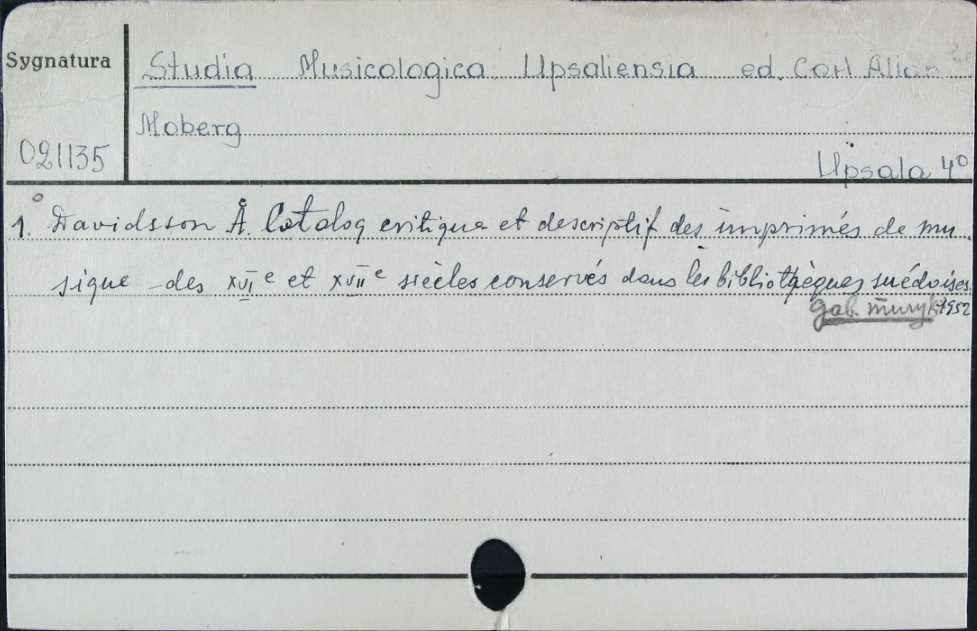 Sygnatura
Studia Musicologica Upsaliensia ed. Carl Allan
Moberg
021135
Upsala 4º
1. Davidsson Å. Catalog critique et descriptif des imprimés de mu
sique des XVIe et XVIIe siècles conservés dans les bibliothèques suédoises.
Gab. muzyk 1952